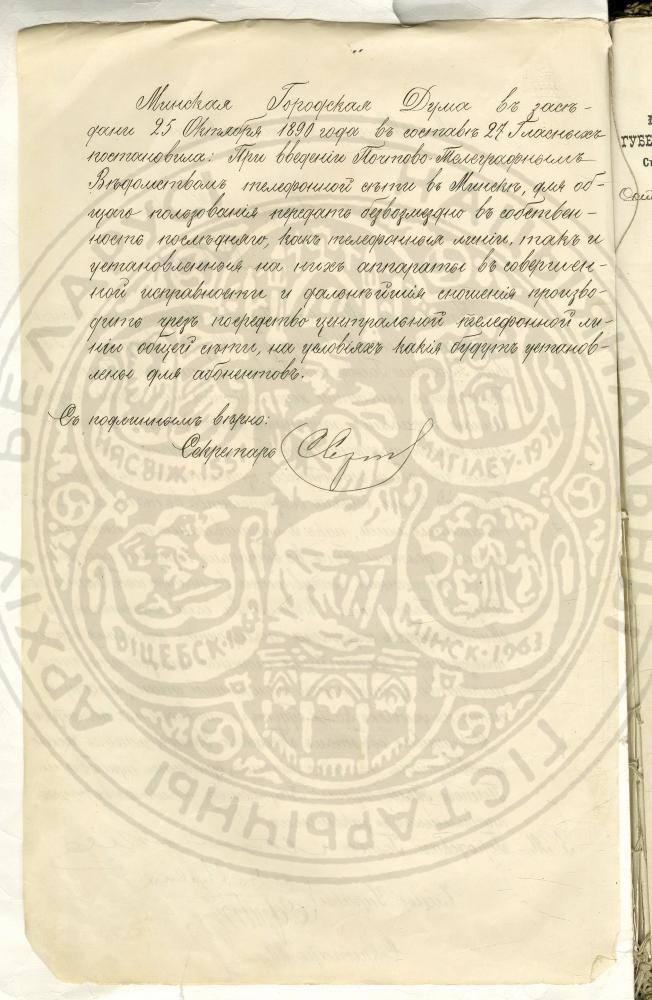 Минская Городская Дума въ засѣ-
даніи 25 Октября 1890 года въ составѣ 27 Гласныхъ
постановила: При введеніи Почтово-Телеграфнымъ
Вѣдомствомъ телефонной сѣти въ Минскѣ, для об-
щаго пользованія передать безвозмездно въ собствен-
ность послѣдняго, какъ телефонныя линіи, такъ и
установленныя на нихъ аппараты въ совершен-
ной исправности и дальнѣйшія сношенія произво-
дить чрезъ посредство центральной телефонной ли-
ніи общей сѣти, на условіяхъ какія будутъ установ-
лены для абонентовъ.
Съ подлиннымъ вѣрно:
Секретарь
НЯСВІЖ·15
МАГІЛЕЎ·19
ВІЦЕБСК·
МІНСК·1963
АРХІЎ БЕЛАРУ
ГІСТАРЫЧНЫ
ГУБЕ